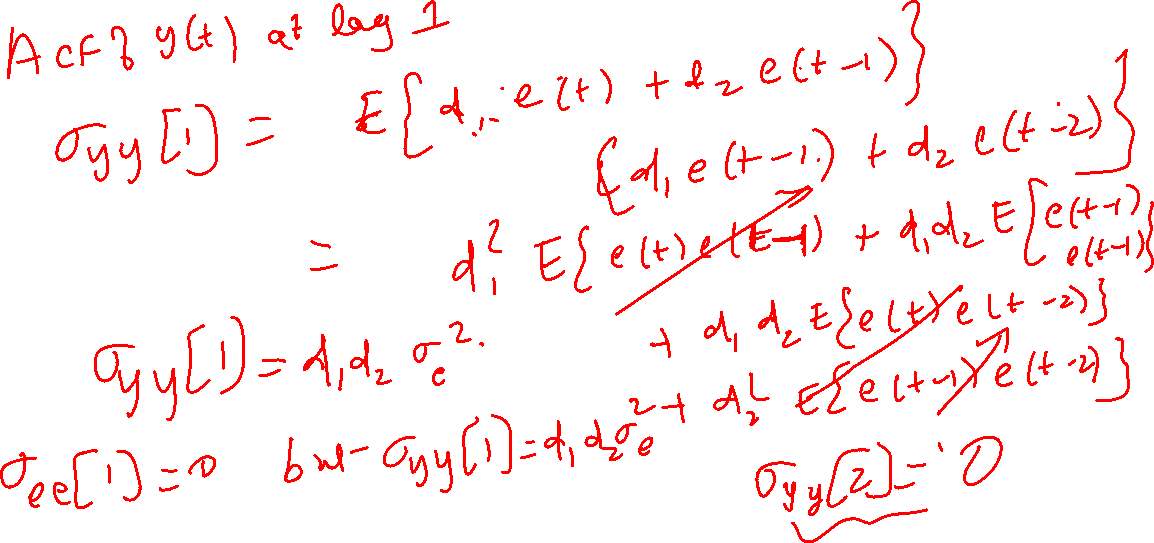 ACF of y(t) at lag 1
σyy[1] = E{d₁ e(t) + d₂ e(t-1)}
{d₁ e(t-1) + d₂ e(t-2)}
= d₁² E{e(t) e(t-1) + d₁d₂ E{e(t-1) e(t-1)}
+ d₁ d₂ E{e(t) e(t-2)}
σyy[1] = d₁d₂ σe².
+ d₂² E{e(t-1) e(t-2)}
σee[1] = 0 but σyy[1] = d₁d₂σe²
σyy[2] = 0